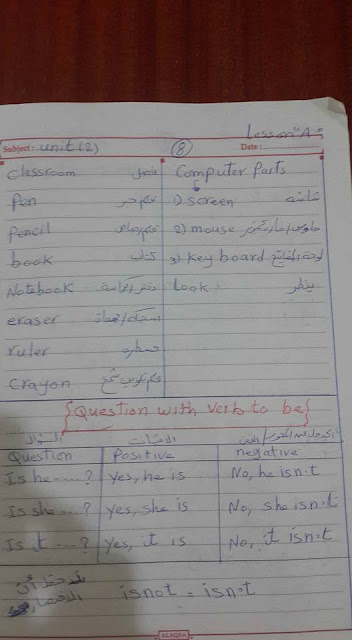 Lesson "A"
Subject: unit (2) 8 Date:
Classroom فصل Computer Parts
Pen قلم حبر 1) screen شاشة
Pencil قلم رصاص 2) mouse
book كتاب 3) key board لوحة المفاتيح
Notebook look ينظر
eraser
ruler مسطرة
Crayon
{Question with verb to be}
السؤال الاثبات
Question Positive negative
Is he ....? Yes, he is No, he isn't
Is she ....? Yes, she is No, she isn't
Is it ....? Yes, it is No, it isn't
isnot = isn't
ALAQSA